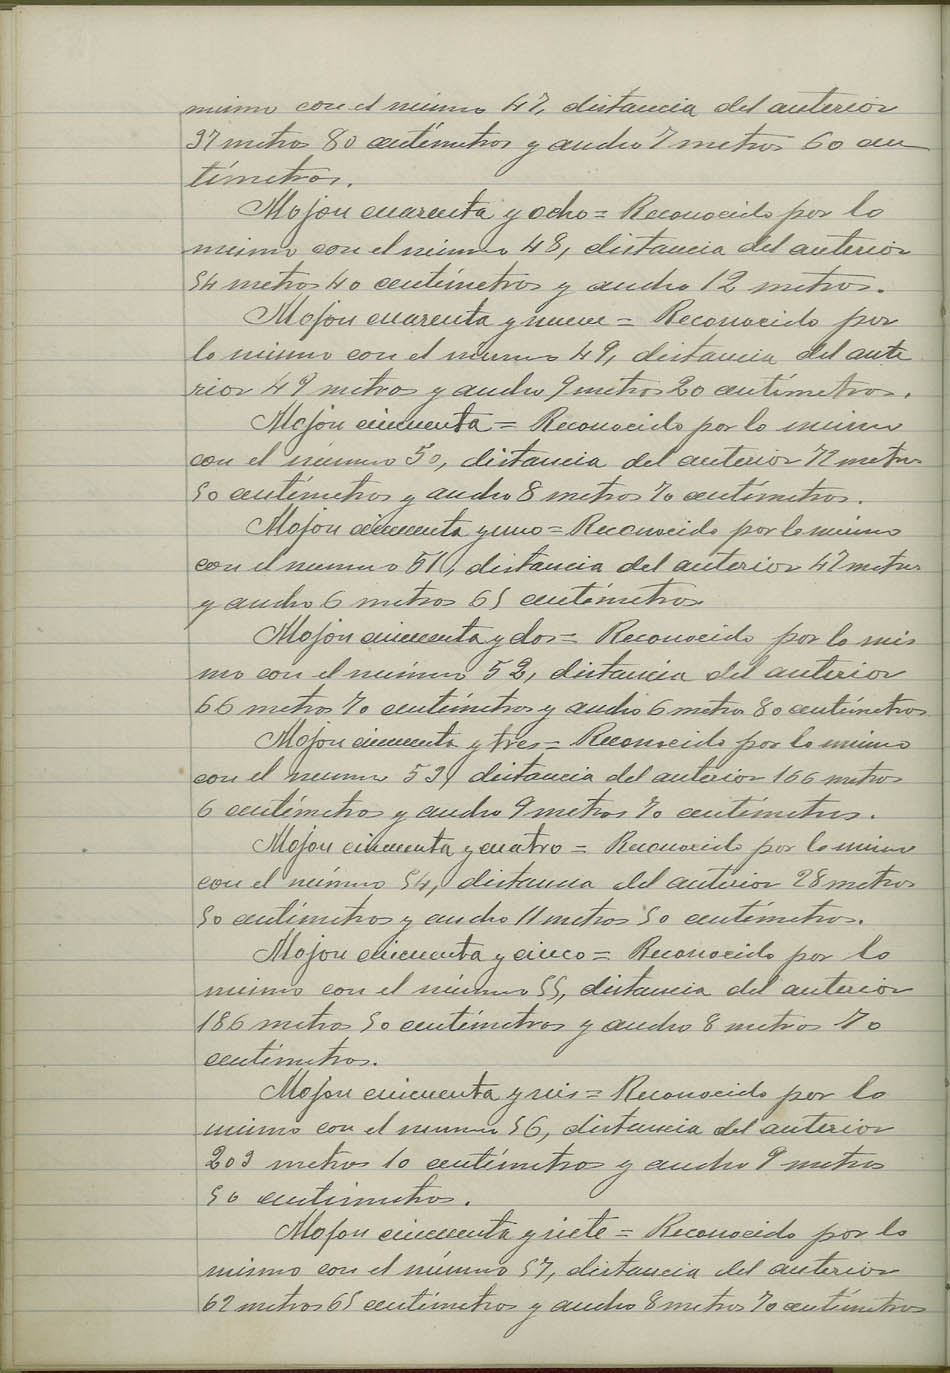 mismo con el número 47, distancia del anterior
37 metros 80 centímetros y ancho 7 metros 60 cen
tímetros.
Mojon cuarenta y ocho = Reconocido por lo
mismo con el número 48, distancia del anterior
54 metros 40 centímetros y ancho 12 metros.
Mojon cuarenta y nueve = Reconocido por
lo mismo con el numero 49, distancia del ante
rior 49 metros y ancho 9 metros 20 centímetros.
Mojon cincuenta = Reconocido por lo mismo
con el número 50, distancia del anterior 72 metros
50 centímetros y ancho 8 metros 70 centímetros.
Mojon cincuenta y uno = Reconocido por lo mismo
con el numero 51, distancia del anterior 47 metros
y ancho 6 metros 65 centímetros
Mojon cincuenta y dos = Reconocido por lo mis
mo con el número 52, distancia del anterior
66 metros 70 centímetros y ancho 6 metros 80 centímetros
Mojon cincuenta y tres = Reconocido por lo mismo
con el numero 53, distancia del anterior 166 metros
6 centímetros y ancho 9 metros 70 centímetros.
Mojon cincuenta y cuatro = Reconocido por lo mismo
con el número 54, distancia del anterior 28 metros
50 centímetros y ancho 11 metros 50 centímetros.
Mojon cincuenta y cinco = Reconocido por lo
mismo con el número 55, distancia del anterior
186 metros 50 centímetros y ancho 8 metros 70
centímetros.
Mojon cincuenta y seis = Reconocido por lo
mismo con el numero 56, distancia del anterior
203 metros 10 centímetros y ancho 9 metros
50 centimetros.
Mojon cincuenta y siete = Reconocido por lo
mismo con el número 57, distancia del anterior
62 metros 65 centímetros y ancho 8 metros 70 centímetros